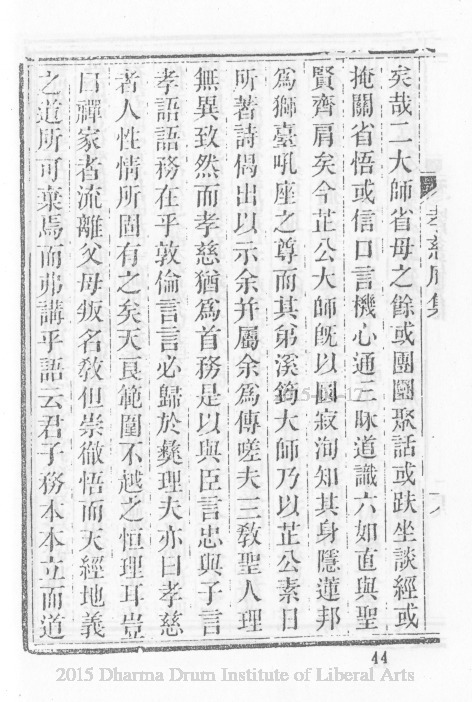 孝慈庵集
矣哉二大師省母之餘或團圞聚話或趺坐談經或
掩關省悟或信口言機心通三昧道識六如直與聖
賢齊肩矣今芷公大師旣以圓寂洵知其身隱蓮邦
爲獅臺吼座之尊而其弟溪筠大師乃以芷公素日
所著詩偈出以示余并屬余爲傳嗟夫三敎聖人理
無異致然而孝慈猶爲首務是以與臣言忠與子言
孝語語務在乎敦倫言言必歸於彝理夫亦曰孝慈
者人性情所固有之矣天良範圍不越之恒理耳豈
曰禪家者流離父母叛名敎但崇徹悟而天經地義
之道所可棄焉而弗講乎語云君子務本本立而道
44
2015 Dharma Drum Institute of Liberal Arts